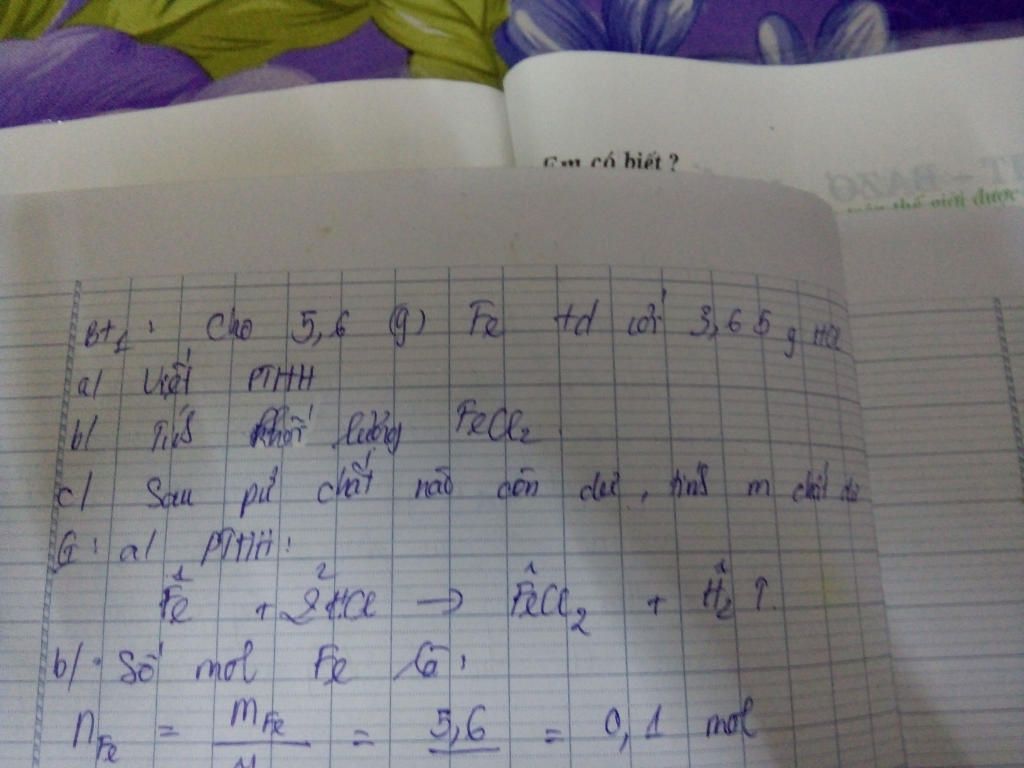 Em có biết ?
IT - BAZƠ
trên thế giới được
BT1 : Cho 5,6 (g) Fe td với 3,65 g HCl
a/ Viết PTHH
b/ Tính khối lượng FeCl2.
c/ Sau pứ chất nào còn dư, tính m chất dư
G : a/ PTHH :
1 2 1 1
Fe + 2HCl → FeCl2 + H2 ↑.
b/ . Số mol Fe là :
nFe = mFe / M = 5,6 = 0,1 mol